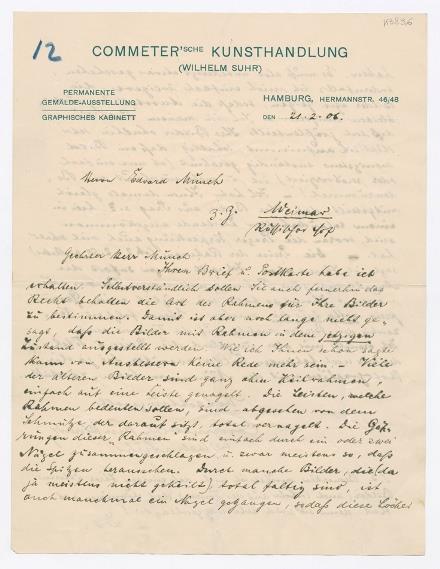 K3836
12
COMMETER'SCHE KUNSTHANDLUNG
(WILHELM SUHR)
PERMANENTE
GEMÄLDE-AUSSTELLUNG
GRAPHISCHES KABINETT
HAMBURG, HERMANNSTR. 46/48
DEN 21.2.06.
Herrn Edvard Munch
z. Z. Weimar
Russischer Hof
Geehrter Herr Munch
Ihren Brief u. Postkarte habe ich
erhalten Selbstverständlich sollen Sie auch fernerhin das
Recht behalten die Art des Rahmens für Ihre Bilder
zu bestimmen. Damit ist aber noch lange nicht ge-
sagt, daß die Bilder mit Rahmen in dem jetzigen
Zustand ausgestellt werden Wie ich Ihnen schon sagte
kann von Aussteuern keine Rede mehr sein. – Viele
der älteren Bilder sind ganz ohne Keilrahmen,
einfach auf eine Leiste genagelt. Die Leisten, welche
Rahmen bedeuten sollen, sind abgesehen von dem
Schmutze der darauf sitzt, total vernagelt. Die Geh-
rungen dieser "Rahmen" sind einfach durch ein oder zwei
Nägel zusammengeschlagen u. zwar meistens so, daß
die Spitzen herausstehen. Durch manche Bilder, die (da
ja meistens nicht gekeilt) total faltig sind, ist
auch manchmal ein Nagel gegangen, sodaß diese Löcher